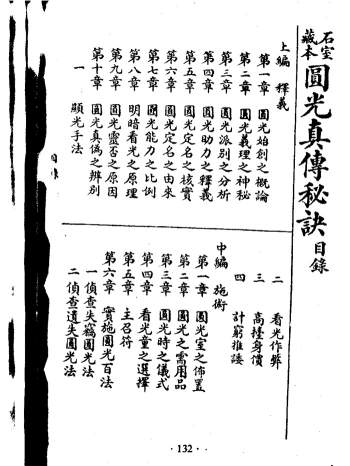 石室藏本
圓光真傳秘訣目錄
上編 釋義
第一章 圓光始創之概論
第二章 圓光義理之神秘
第三章 圓光派別之分析
第四章 圓光助力之釋義
第五章 圓光定名之核實
第六章 圓光定名之由來
第七章 圓光能力之比例
第八章 明暗看光之原理
第九章 圓光靈否之原因
第十章 圓光真偽之辨別
一 顯光手法
目錄
二 看光作弊
三 高擡身價
四 計窮推諉
中編 施術
第一章 圓光室之佈置
第二章 圓光之需用品
第三章 圓光時之儀式
第四章 看光童之選擇
第五章 主召符
第六章 實施圓光百法
一 偵查失竊圓光法
二 偵查遺失圓光法
·132·